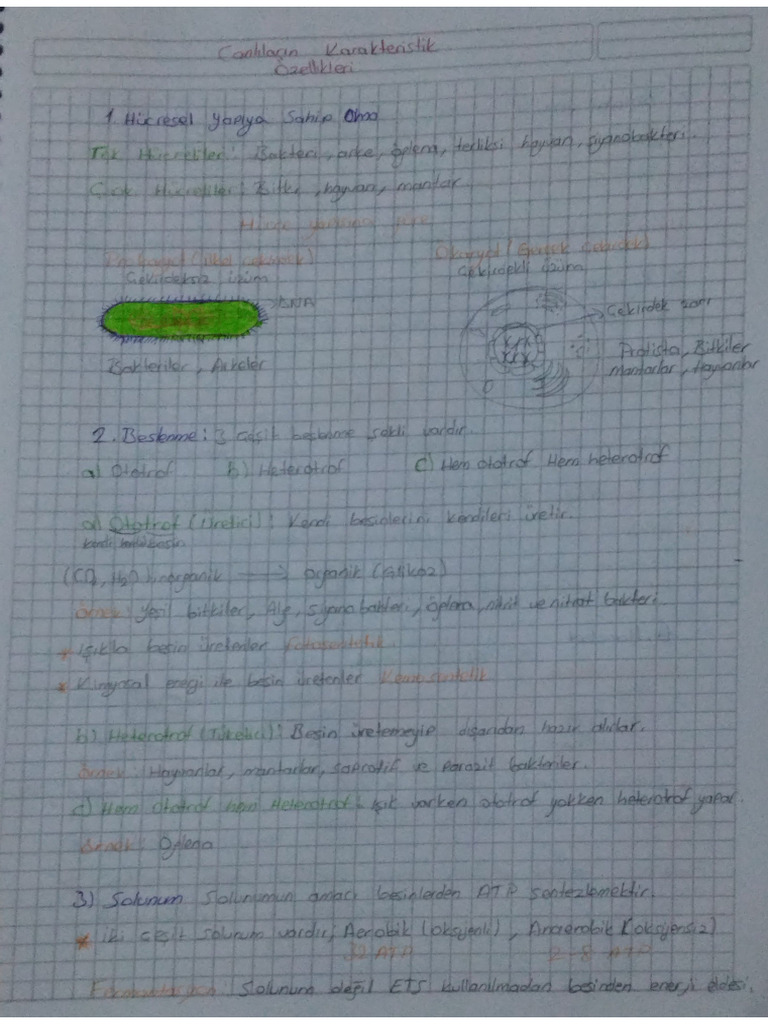 Canlıların Karakteristik
Özellikleri
1. Hücresel yapıya Sahip Olma
Tek Hücreliler: Bakteri, arke, öglena, terliksi hayvan, siyanobakteri.
Çok Hücreliler: Bitki, hayvan, mantar
Hücre yapısına göre
Prokaryot (ilkel çekirdek) Ökaryot (Gerçek Çekirdek)
Çekirdeksiz üzüm Çekirdekli üzüm
DNA
Çekirdek zarı
Bakteriler, Arkeler
Protista, Bitkiler
mantarlar, Hayvanlar
2. Beslenme: 3 çeşit beslenme şekli vardır.
a) Ototrof b) Heterotrof c) Hem ototrof Hem heterotrof
a) Ototrof (Üretici): Kendi besinlerini kendileri üretir.
(CO₂, H₂O) inorganik → Organik (Glikoz)
Örnek: Yeşil bitkiler, Alg, Siyanobakteri, öglena, nitrit ve nitrat bakteri
* Işıkla besin üretenler Fotosentetik.
* Kimyasal enerji ile besin üretenler Kemosentetik
b) Heterotrof (Tüketici): Besin üretemeyip dışarıdan hazır alırlar.
Örnek: Hayvanlar, mantarlar, saprofit ve Parazit bakteriler.
c) Hem Ototrof hem Heterotrof: Işık varken ototrof yokken heterotrof yapar.
Örnek: Öglena
3) Solunum Solunumun amacı besinlerden ATP sentezlemektir.
* İki çeşit solunum vardır; Aerobik (oksijenli), Anaerobik (oksijensiz)
32 ATP 2-8 ATP
Fermantasyon Solunum değil ETS kullanılmadan besinden enerji eldesi.